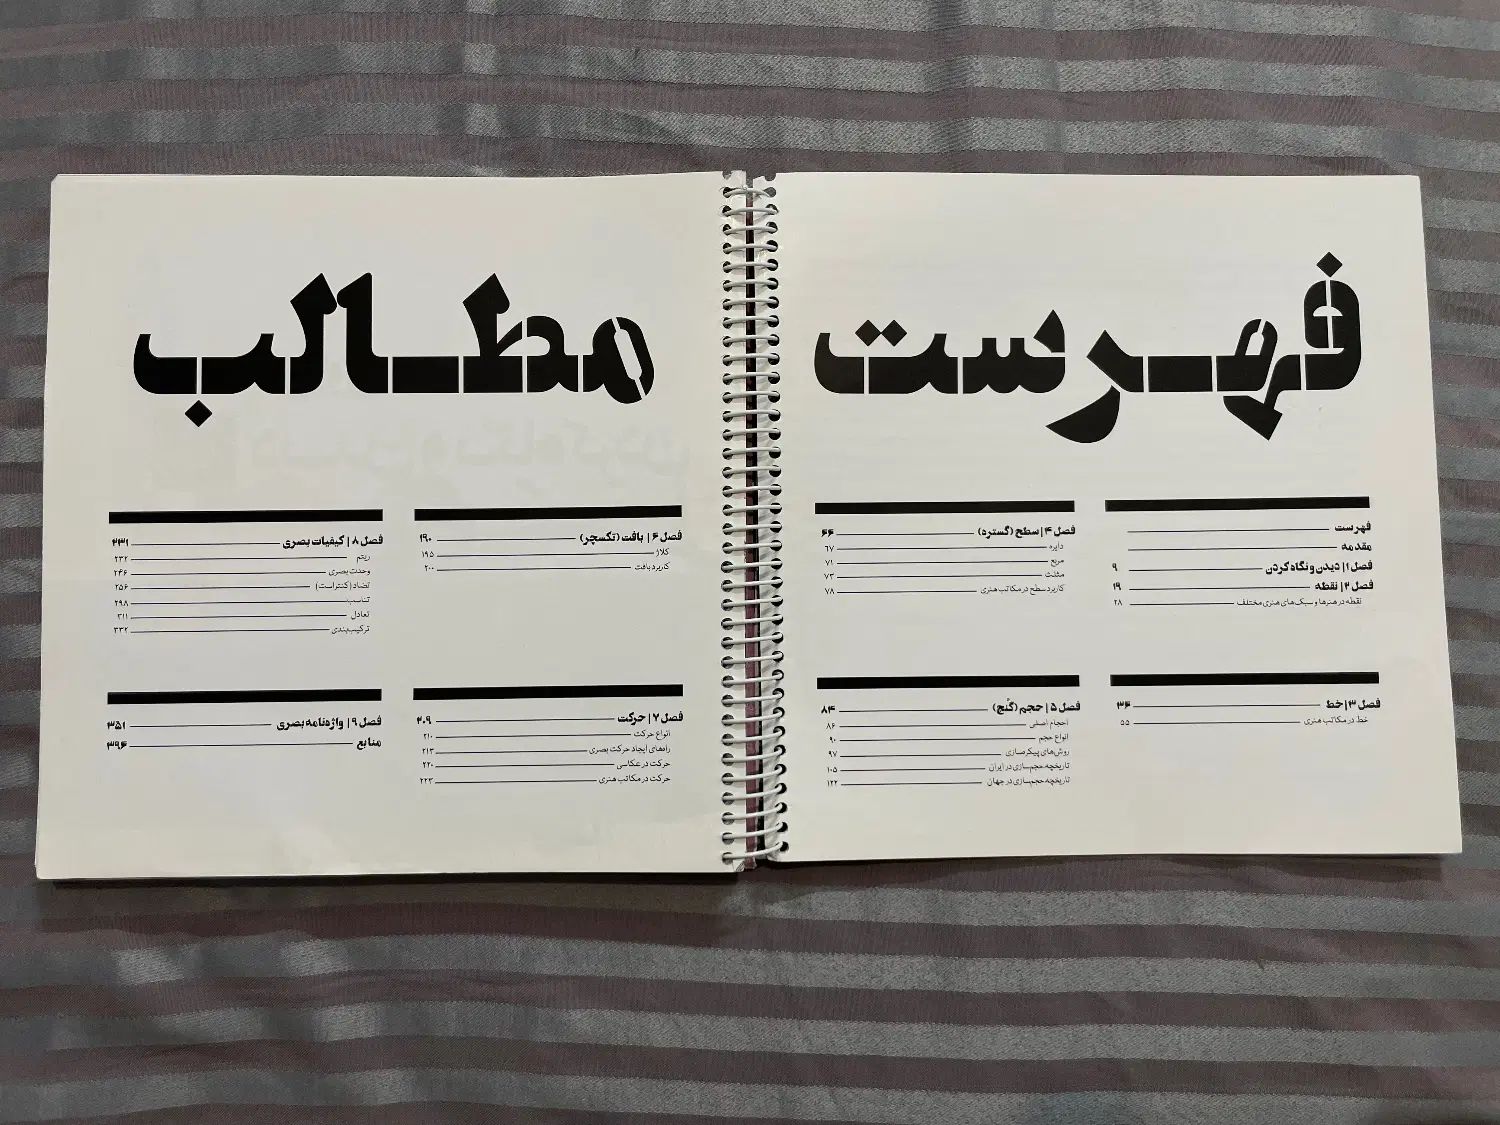 فهرست
مطالب
فهرست
مقدمه
فصل ۱ | دیدن و نگاه کردن ۹
فصل ۲ | نقطه ۱۹
نقطه در هنرها و سبک‌های هنری مختلف ۲۸
فصل ۳ | خط ۳۴
خط در مکاتب هنری ۵۵
فصل ۴ | سطح (گستره) ۶۶
دایره ۶۷
مربع ۷۱
مثلث ۷۳
کاربرد سطح در مکاتب هنری ۷۸
فصل ۵ | حجم (گُنج) ۸۴
احجام اصلی ۸۶
انواع حجم ۹۰
روش‌های پیکره‌سازی ۹۷
تاریخچه حجم‌سازی در ایران ۱۰۵
تاریخچه حجم‌سازی در جهان ۱۲۲
فصل ۶ | بافت (تکسچر) ۱۹۰
کلاژ ۱۹۵
کاربرد بافت ۲۰۰
فصل ۷ | حرکت ۲۰۹
انواع حرکت ۲۱۰
راه‌های ایجاد حرکت بصری ۲۱۳
حرکت در عکاسی ۲۲۰
حرکت در مکاتب هنری ۲۲۳
فصل ۸ | کیفیات بصری ۲۳۱
ریتم ۲۳۲
وحدت بصری ۲۴۶
تضاد (کنتراست) ۲۵۶
تناسب ۲۹۸
تعادل ۳۱۱
ترکیب‌بندی ۳۳۲
فصل ۹ | واژه‌نامه بصری ۳۵۱
منابع ۳۹۶